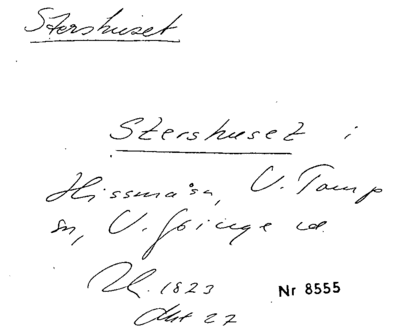 Stershuset
Stershuset i
Hissmåsn, V. Torup
sn, V. Göinge hd.
Dl. 1823
Akt 27
Nr 8555